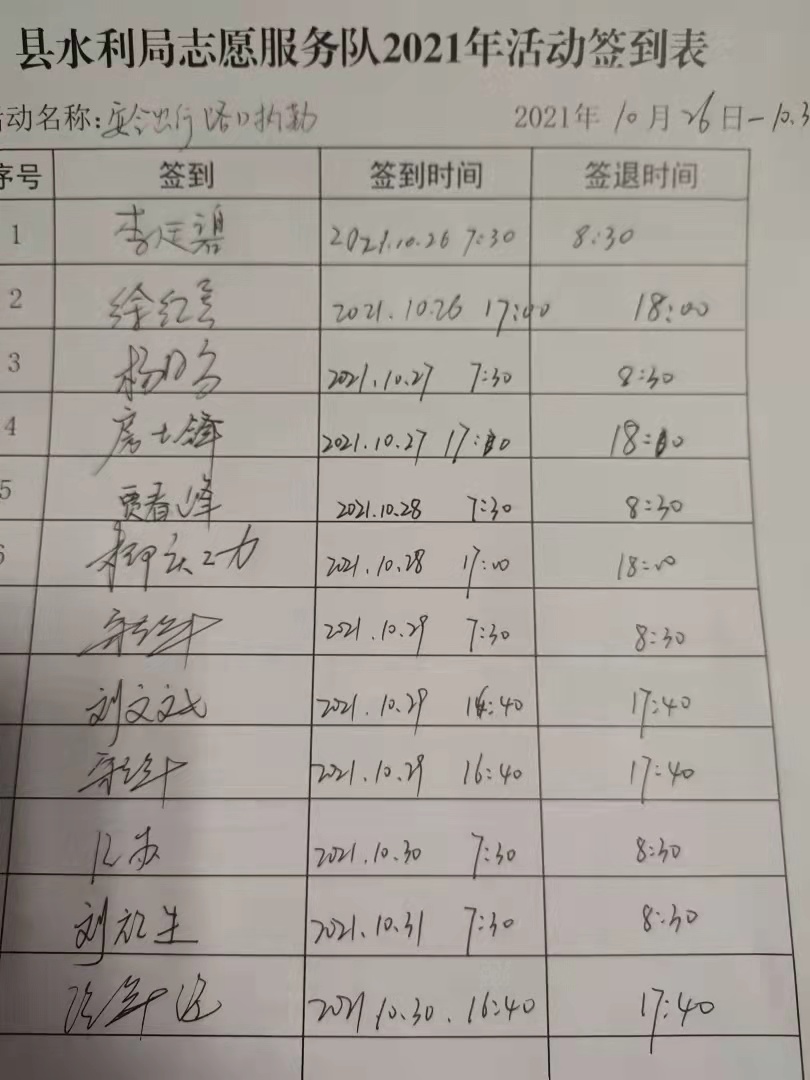 县水利局志愿服务队2021年活动签到表
活动名称:安全出行路口执勤 2021年10月26日-10.3
序号 签到 签到时间 签退时间
1 李廷碧 2021.10.26 7:30 8:30
2 徐红 2021.10.26 17:00 18:00
3 杨 2021.10.27 7:30 8:30
4 房士锋 2021.10.27 17:10 18:10
5 贾春峰 2021.10.28 7:30 8:30
柳 2021.10.28 17:00 18:00
2021.10.29 7:30 8:30
刘文 2021.10.29 16:40 17:40
2021.10.29 16:40 17:40
2021.10.30 7:30 8:30
刘 生 2021.10.31 7:30 8:30
2021.10.30. 16:40 17:40